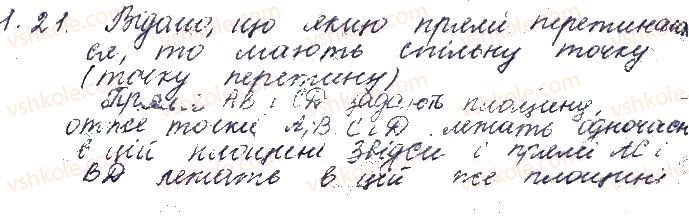 1.21. Відомо, що якщо прямі перетинають
ся, то мають спільну точку
(точку перетину)
Прямі AB і CD задають площину,
отже точки A, B, C і D лежать одночасн
в цій площині Звідси і прямі AC і
BD лежать в цій же площині